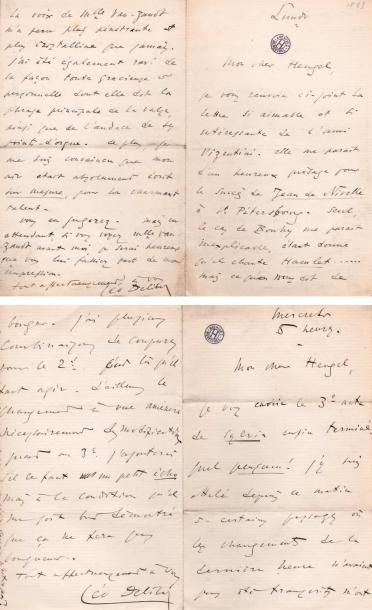 Lundi
1883
Mon cher Hengel,
je vous renvoie ci-joint la
lettre si aimable et si
intéressante de l'ami
Vizentini. elle me paraît
d'un heureux présage pour
le succès de Jean de Nivelle
à St Pétersbourg. Seul,
le cas de Bouhy me paraît
inexplicable, étant donné
qu'il chante Hamlet.....
mais ce qui est de
La voix de Mlle Van-Zandt
m'a paru plus pénétrante et
plus cristalline que jamais.
J'ai été également ravi de
la façon toute gracieuse et
personnelle dont elle dit la
phrase principale de la valse,
ainsi que de l'audace de ses
points d'orgue. De plus
me suis convaincu que mon
air était absolument écrit
sur mesure, pour son charmant
talent.
Vous en jugerez. mais en
attendant si vous voyez Mlle Van-
Zandt avant moi je serai heureux
que vous lui fassiez part de mon
impression.
Tout affectueusement à vous
Léo Delibes
Mercredi
5 heures.
Mon cher Hengel,
je vous envoie le 3e acte
de Sylvia enfin terminé
quel pensum! j'y suis
attelé depuis ce matin
5- certains passages où
les changements de la
dernière heure n'avaient
pas été transcrits m'ont
J'ai plusieurs
combinaisons de coupures
pour le 2e.
faut agir. D'ailleurs le
changement à vue amènera
nécessairement des modifications
quant au 3e, j'ajouterai
s'il le faut un petit écho
mais à la condition qu'il
me soit bien démontré
que ça ne fera pas
longueur.
Tout affectueusement à vous
Léo Delibes